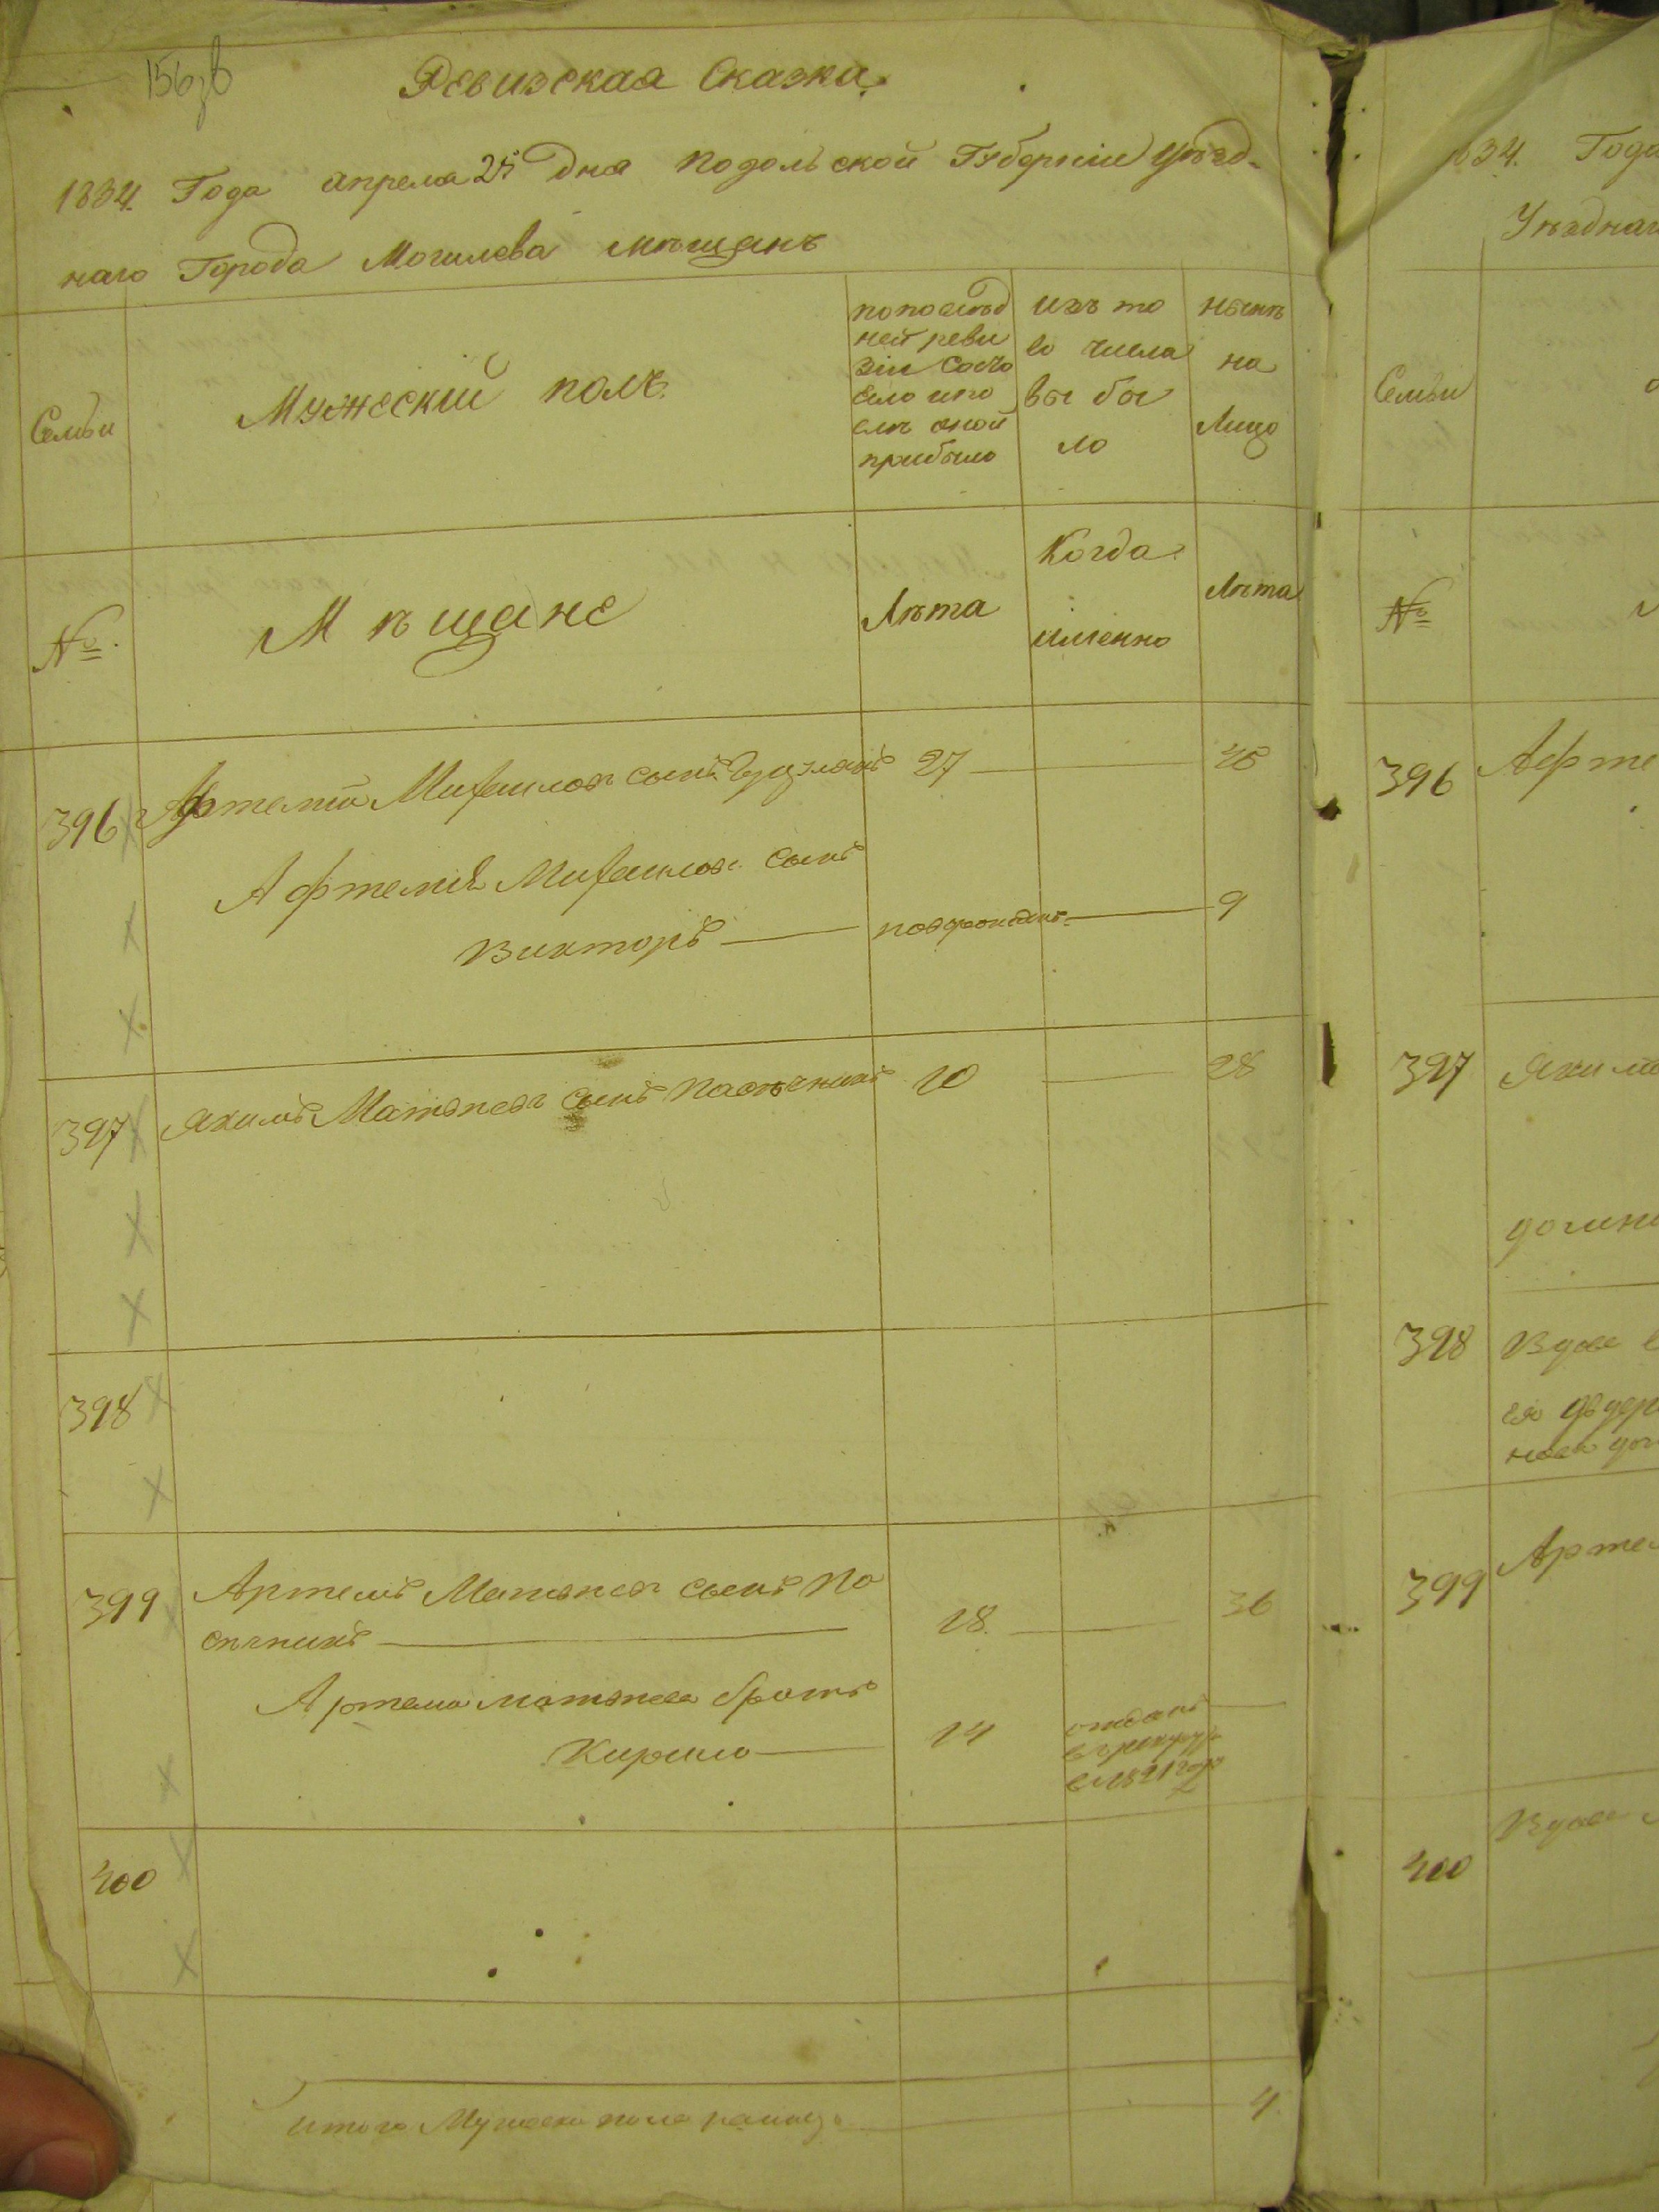 156 зв
Ревизская Сказка.
1834. Года апреля 25 дня подольской Губернии уезд-
наго Города Могилева мѣщанъ
Семьи
Мужеский полъ.
попослѣд
ней реви
зіи Состо
яло ипо
слѣ оной
прибыло
изъ то
го числа
вы бы
ло
нынѣ
на
Лицо
№.
Мѣщане
Лѣта
Когда
именно
Лѣта
396 Афтемій Михаиловъ сынъ 27 45
Афтемія Михаилова сынъ
Викторъ новорожденъ 9
397 Якимъ Матвѣевъ сынъ Пасѣчникъ 10 28
398
399 Артемъ Матвѣевъ сынъ Па
сѣчникъ 18. 36
Артема матвѣева братъ
Кирило 14
отданъ
въ рекруты
в 1821 годѣ
400
итого Мужеска пола налицо 4
134. Года
Уѣзднаг
Семьи
№
396 Афте
397 Якима
398 Вдова
399 Артем
400 Вдова